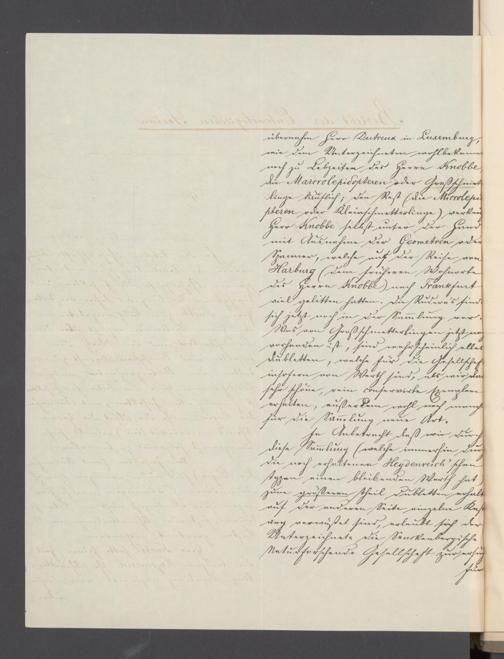 übernahm Herr Dutreux in Luxemburg,
wie dem Unterzeichneten wohlbekannt
noch zu Lebzeiten des Herrn Knobbe
die Macrolepidopteren oder Großschmet
linge käuflich; den Rest (die Microlepi
pteren oder Kleinschmetterlinge) verkauf
Herr Knobbe selbst unter der Hand
mit Ausnahme der Geometren oder
Spanner, welche auf der Reise von
Harburg (dem früheren Wohnorte
des Herrn Knobbe) nach Frankfurt
viel gelitten hatten. Die Rudera sind
sich jetzt noch in der Sammlung vor.
Was von Großschmetterlingen jetzt noch
vorhanden ist, sind wahrscheinlich alles
Dubletten, welche für die Gesellschaft
insofern von Werth sind, als wir
sehr schöne, rein conservirte Exemplare
erhalten, außerdem wohl noch manche
für die Sammlung neue Art.
In Anbetracht daß wir durch
diese Sammlung (welche immerhin durch
die noch erhaltenen Heydenreich'schen
Typen einen bleibenden Werth hat
zum größeren Theil Dubletten erhalt
auf der anderen Seite einzelne
arg verwüstet sind, erlaubt sich der
Unterzeichnete die Senckenbergische
Naturforschende Gesellschaft zu ersu
für